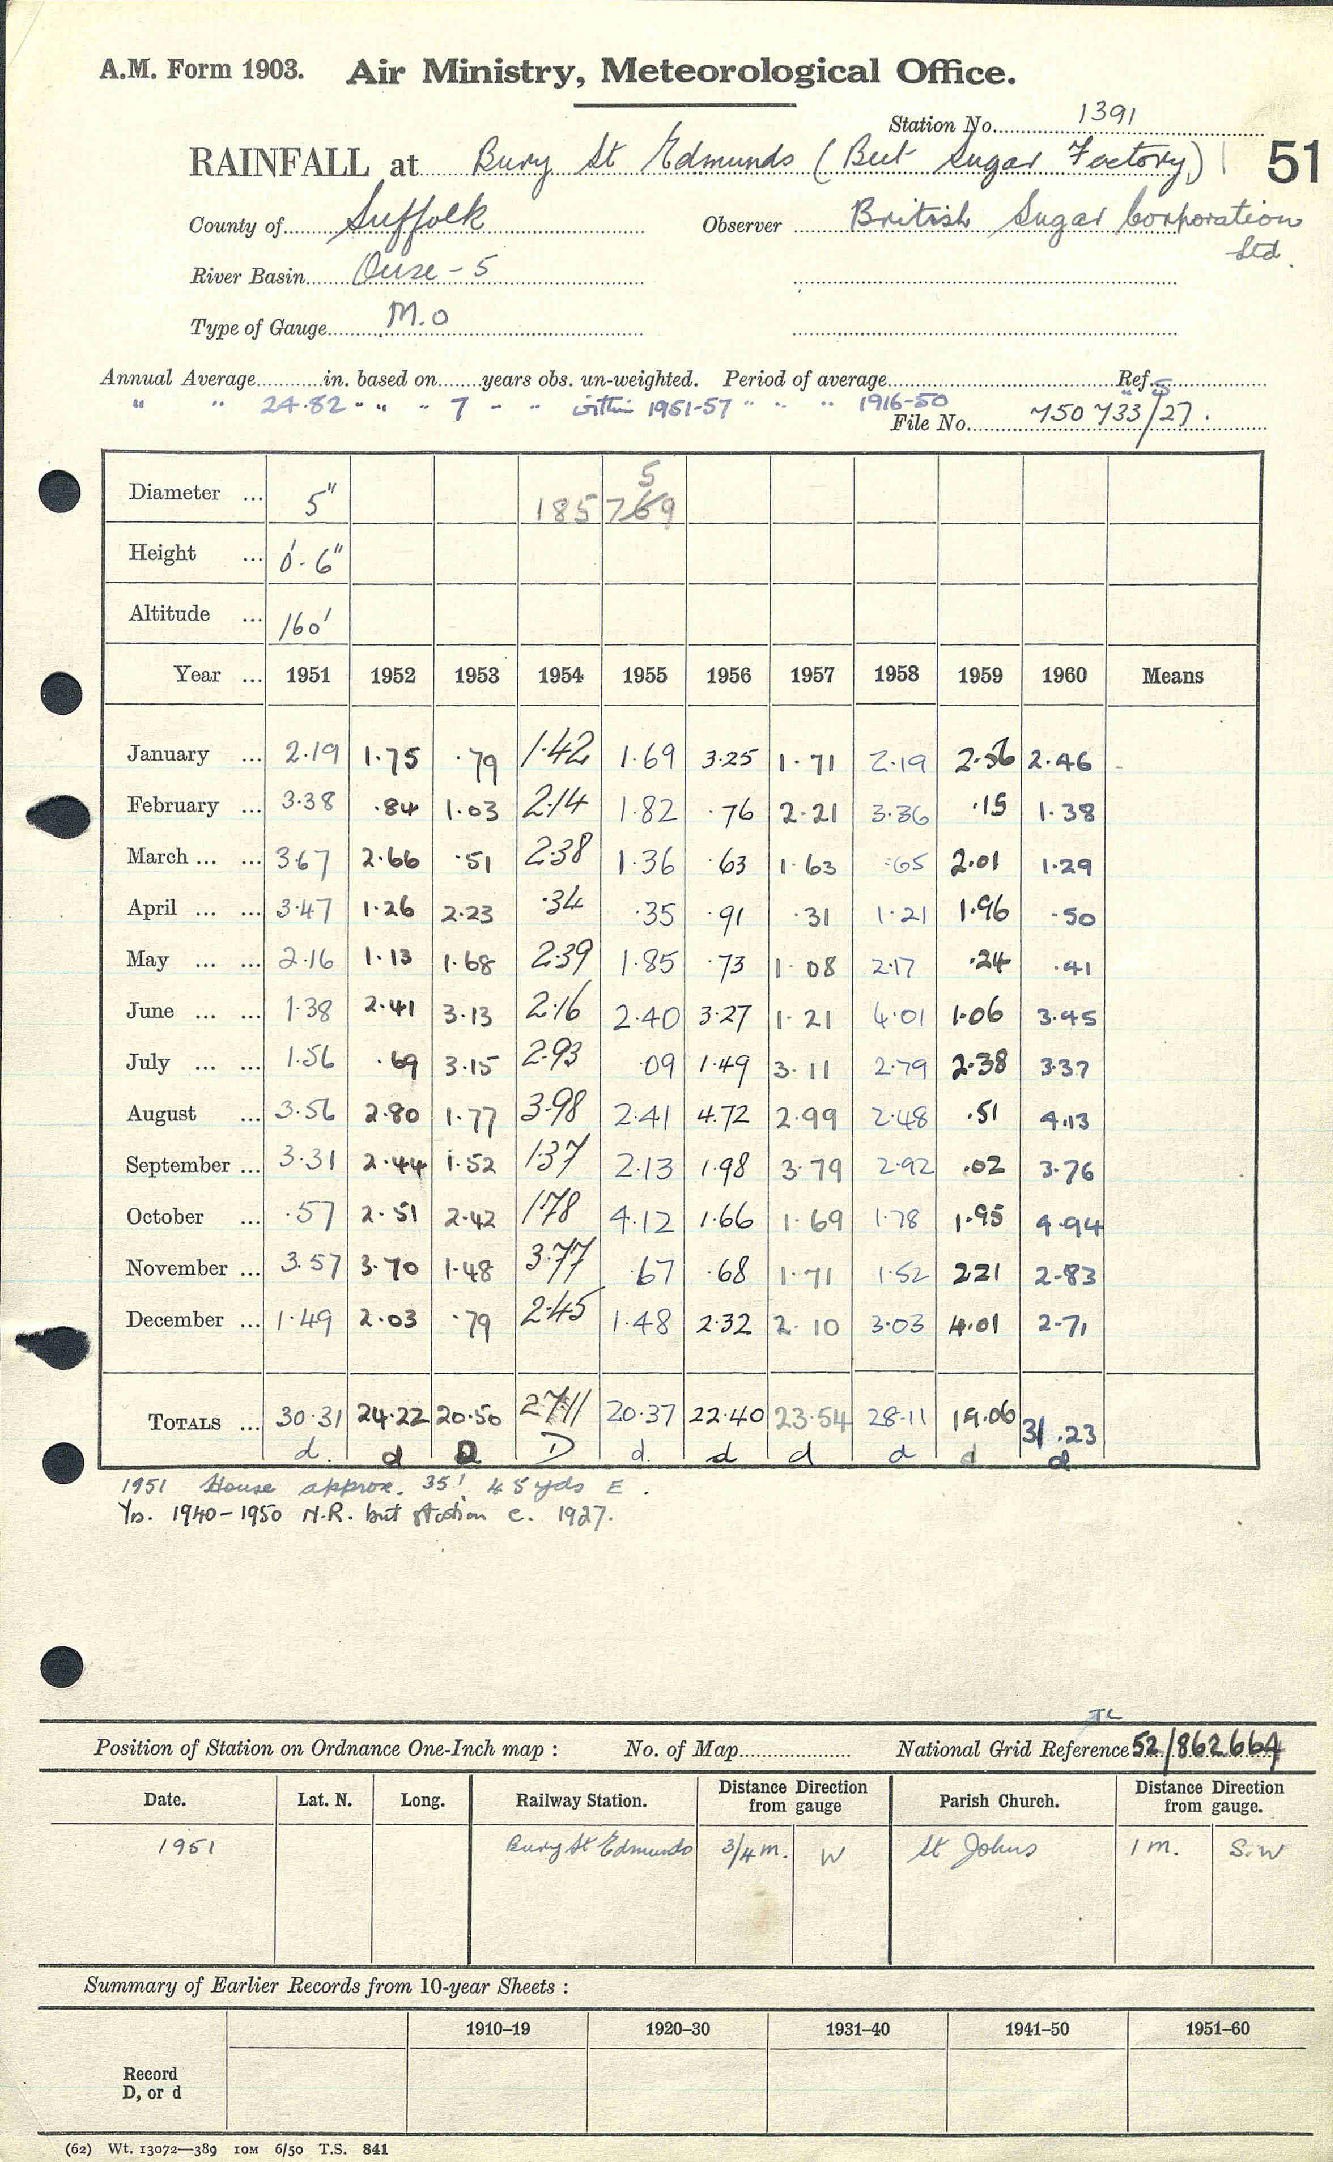 A.M. Form 1903. Air Ministry, Meteorological Office.
Station No. 1391
RAINFALL at Bury St Edmunds (Beet Sugar Factory) 51
County of Suffolk Observer British Sugar Corporation
Ltd.
River Basin Ouse - 5
Type of Gauge M.O
Annual Average in. based on years obs. un-weighted. Period of average Ref.
" " 24.82 " " " 7 " " within 1951-57 " " " 1916-50
File No. 750733/27.
Diameter ... 5" 185769 5
Height ... 0'-6"
Altitude ... 160'
Year ... 1951 1952 1953 1954 1955 1956 1957 1958 1959 1960 Means
January ... 2.19 1.75 .79 1.42 1.69 3.25 1.71 2.19 2.56 2.46
February ... 3.38 .84 1.03 2.14 1.82 .76 2.21 3.36 .15 1.38
March ... ... 3.67 2.66 .51 2.38 1.36 .63 1.63 .65 2.01 1.29
April ... ... 3.47 1.26 2.23 .34 .35 .91 .31 1.21 1.96 .50
May ... ... 2.16 1.13 1.68 2.39 1.85 .73 1.08 2.17 .24 .41
June ... ... 1.38 2.41 3.13 2.16 2.40 3.27 1.21 4.01 1.06 3.45
July ... ... 1.56 .69 3.15 2.93 .09 1.49 3.11 2.79 2.38 3.37
August ... 3.56 2.80 1.77 3.98 2.41 4.72 2.99 2.48 .51 4.13
September ... 3.31 2.44 1.52 1.37 2.13 1.98 3.79 2.92 .02 3.76
October ... .57 2.51 2.42 1.78 4.12 1.66 1.69 1.78 1.95 4.94
November ... 3.57 3.70 1.48 3.77 .67 .68 1.71 1.52 2.21 2.83
December ... 1.49 2.03 .79 2.45 1.48 2.32 2.10 3.03 4.01 2.71
TOTALS ... 30.31 24.22 20.50 27.11 20.37 22.40 23.54 28.11 19.06 31.23
d. d D D d. d d d d d
1951 House approx. 35', 45 yds E.
Yrs. 1940-1950 N.R. but station c. 1927.
TL
Position of Station on Ordnance One-Inch map : No. of Map National Grid Reference 52/862664
Date. Lat. N. Long. Railway Station. Distance from Direction gauge Parish Church. Distance from Direction gauge.
1951 Bury St Edmunds 3/4 m. W St Johns 1 m. S.W
Summary of Earlier Records from 10-year Sheets :
1910–19 1920–30 1931–40 1941–50 1951–60
Record
D, or d
(62) Wt. 13072—389 10M 6/50 T.S. 841